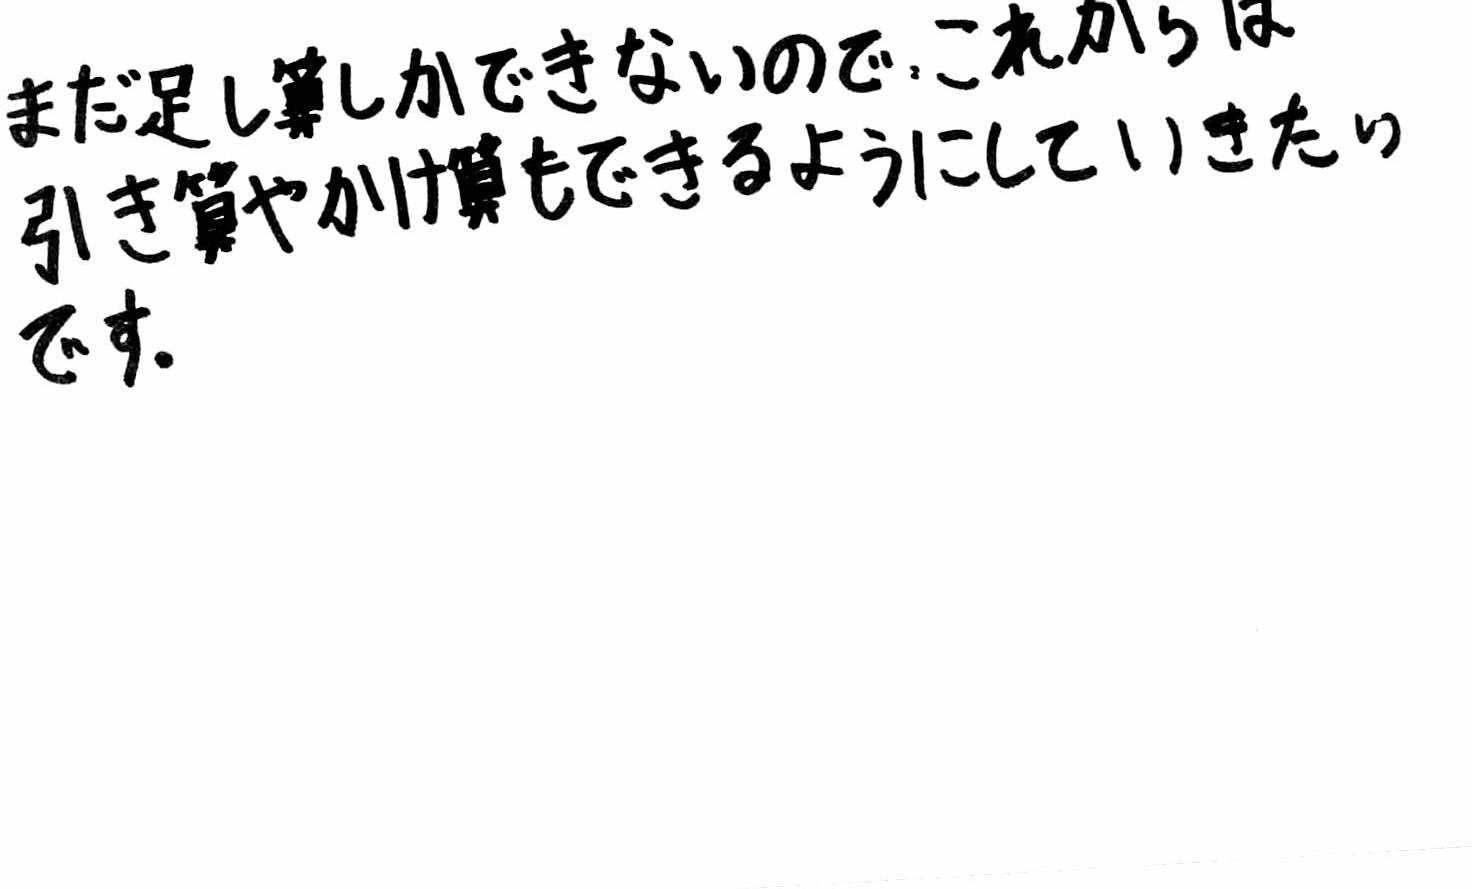 まだ足し算しかできないので、これからは
引き算やかけ算もできるようにしていきたい
です。